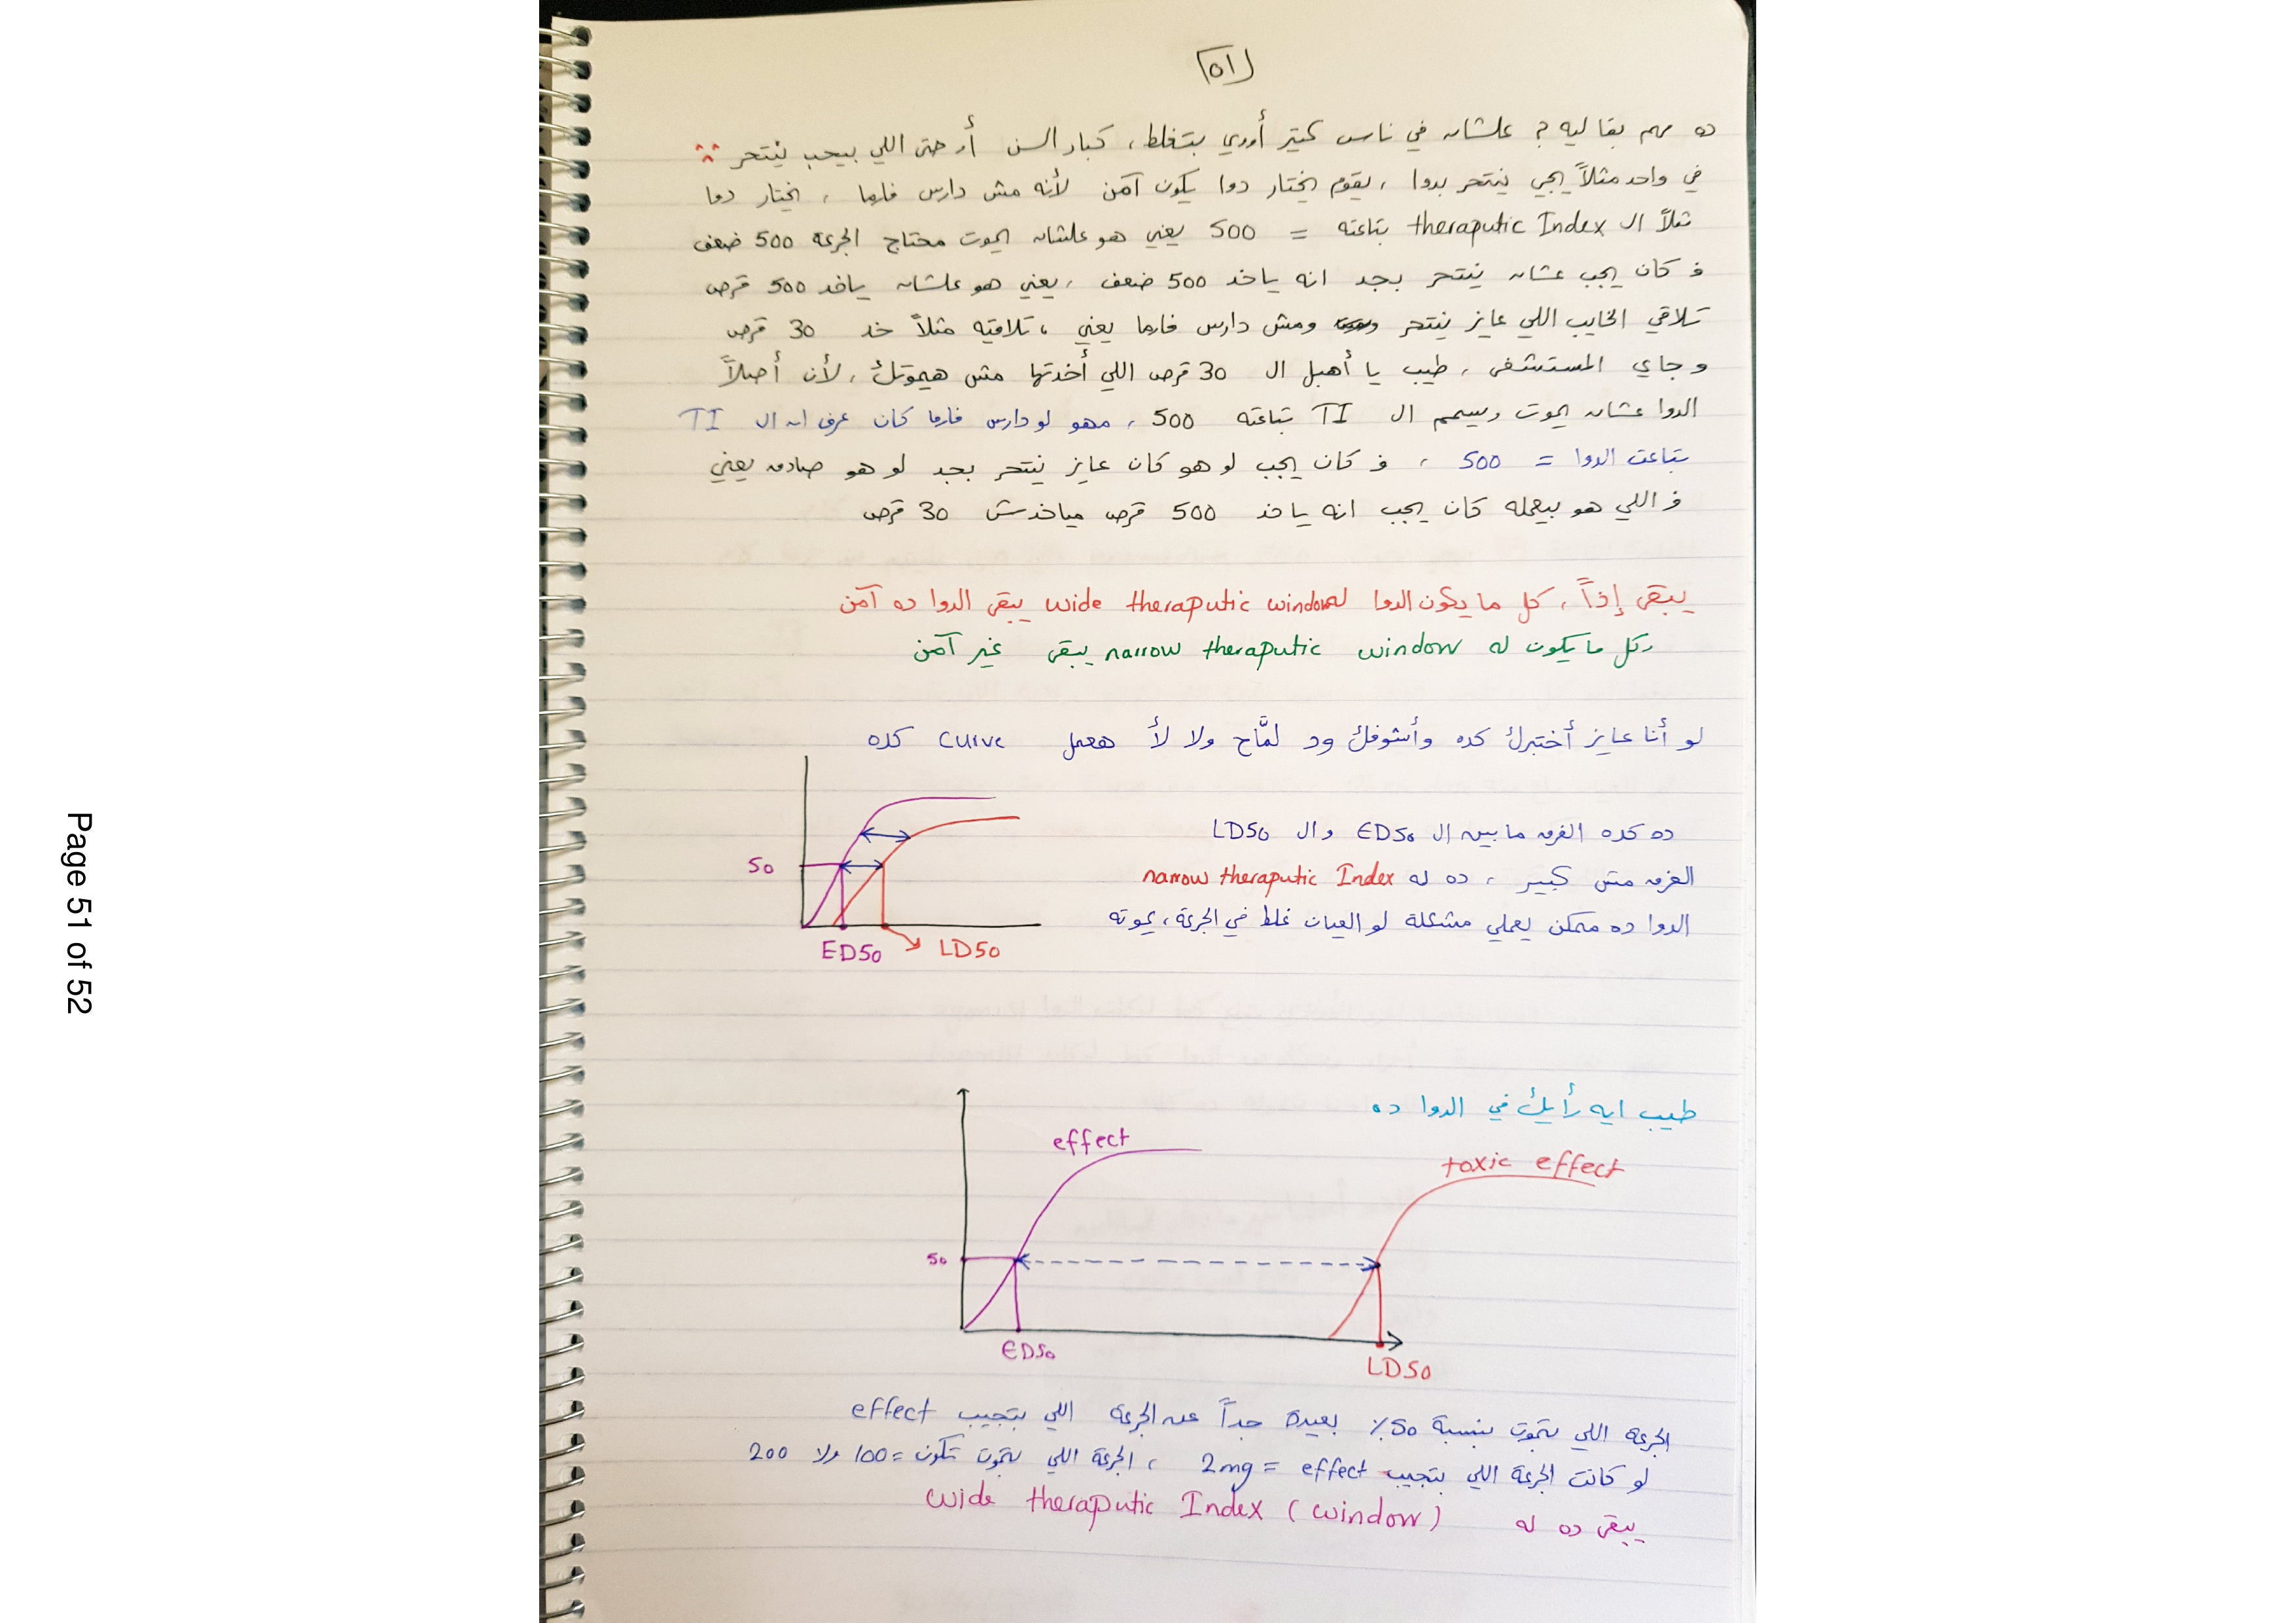 ٥١
ده مهم بقا ليه ؟ علشان في ناس كتير أوي بتغلط ، كبار السن أو حتى اللي بيحب ينتحر
في واحد مثلاً يجي ينتحر بدوا ، يقوم يختار دوا يكون آمن لأنه مش دارس فارما ، يختار دوا
مثلاً ال theraputic Index بتاعته = 500 يعني هو علشان يموت محتاج الجرعة 500 ضعف
ف كان يجب عشان ينتحر بجد انه ياخد 500 ضعف ، يعني هو علشان ياخد 500 قرص
تلاقي الخايب اللي عايز ينتحر ومش دارس فارما يعني ، تلاقيه مثلاً خد 30 قرص
و جاي المستشفى ، طيب يا أهبل ال 30 قرص اللي أخدتها مش هيموتك ، لأن أصلاً
الدوا عشان يموت ويسمم ال TI بتاعته 500 ، مهو لو دارس فارما كان عرف ان ال TI
بتاعت الدوا = 500 ، ف كان يجب لو هو كان عايز ينتحر بجد لو هو صادق يعني
ف اللي هو بيعمله كان يجب انه ياخد 500 قرص مياخدش 30 قرص
يبقى إذاً ، كل ما يكون الدوا له wide theraputic window يبقى الدوا ده آمن
وكل ما يكون له narrow theraputic window يبقى غير آمن
لو أنا عايز أختبرك كده وأشوفك ود لمَّاح ولا لأ هعمل curve كده
ده كده الفرق ما بين ال ED50 و ال LD50
الفرق مش كبير ، ده له narrow theraputic Index
الدوا ده ممكن يعملي مشكلة لو العيان غلط في الجرعة ، يموته
50
ED50
LD50
طيب ايه رأيك في الدوا ده
effect
toxic effect
50
ED50
LD50
الجرعة اللي بتموت بنسبة 50٪ بعيدة جداً عن الجرعة اللي بتجيب effect
لو كانت الجرعة اللي بتجيب effect = 2mg ، الجرعة اللي بتموت تكون = 100 ولا 200
يبقى ده له wide theraputic Index (window)
Page 51 of 52